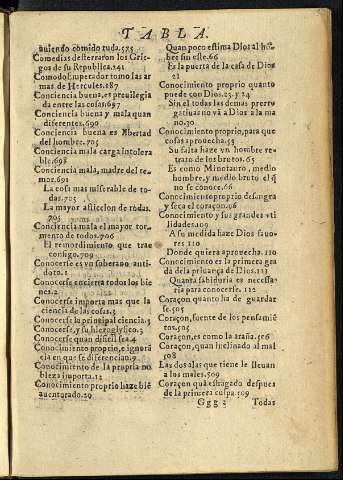 TABLA.
auiendo comido ruda.575
Comedias desterraron los Griegos
de su Republica.241
Comodo Emperador tomo las armas
de Hercules.287
Conciencia buena, es preuilegia
da entre las cosas.697
Conciencia buena y mala quan
diferentes.690
Conciencia buena es libertad
del hombre.705
Conciencia mala carga intolera
ble.698
Conciencia mala, madre del remor
.691
La cosa mas miserable de todas
.705
La mayor afliccion de todas.
705
Conciencia mala el mayor tormento
de todos.706
El remordimiento que trae
consigo.709
Conocerse es vn soberano antidoto
.1
Conocerse encierra todos los bienes
.2
Conocerse importa mas que la
ciencia de las cosas.3
Conocerse la principal ciencia.3
Conocerse, y su hieroglyfico.3
Conocerse quan dificil sea.4
Conocimiento proprio, e ignorã
cia en que se diferencian.9
Conocimiento de la propria no
bleza importa.12
Conocimiento proprio haze biē
auenturado.20
Quan poco estima Dios al hõ
bre sin este.66
Es la puerta de la casa de Dios
21
Conocimiento proprio quanto
puede con Dios.23. y 24
Sin el todas las demas prerro
gatiuas no vã a Dios a la mano
.30
Conocimiento proprio, para que
cosas aprouecha.55
Su falta haze vn hombre retrato
de los brutos.65
Es como Minotauro, medio
hombre, y medio bruto el q̃
no se conoce.66
Conocimiento proprio desangra
y seca el coraçon.96
Conocimiento y sus grandes vti
lidades.109
A su medida haze Dios fauores
110
Donde quiera aprouecha.110
Conocimiento es la primera grada
de la priuança de Dios.123
Quanta sabiduria es necessaria
para conocerse.125
Coraçon quanto ha de guardarse
.505
Coraçon, fuente de los pensamiẽ
tos.505
Coraçon, es como la araña.506
Coraçon, quan inclinado al mal
508
Las dos alas que tiene le lleuan
a los males.509
Coraçon quã estragado despues
de la primera culpa.509
Ggg 3 Todas